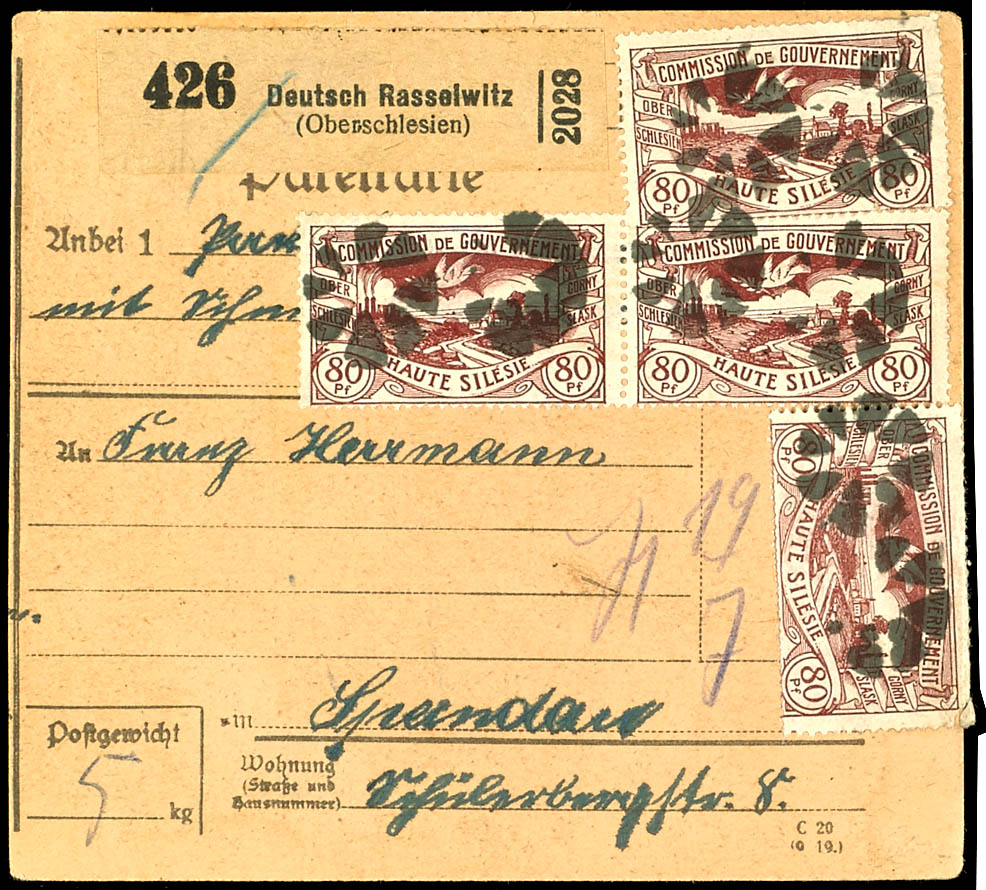 426 Deutsch Rasselwitz 2028
(Oberschlesien)
COMMISSION DE GOUVERNEMENT
OBER GORNY
SCHLESIEN SLASK
80 Pf HAUTE SILÉSIE 80 Pf
Anbei 1
COMMISSION DE GOUVERNEMENT
OBER GORNY
SCHLESIEN SLASK
80 Pf HAUTE SILÉSIE 80 Pf
COMMISSION DE GOUVERNEMENT
OBER GORNY
SCHLESIEN SLASK
80 Pf HAUTE SILÉSIE 80 Pf
mit
An Franz Herrmann
COMMISSION DE GOUVERNEMENT
OBER GORNY
SCHLESIEN SLASK
80 Pf HAUTE SILÉSIE 80 Pf
19
7
in Spandau
Postgewicht
5 kg
Wohnung
(Straße und
Hausnummer)
Schülerbergstr. 8.
C 20
(9 19.)